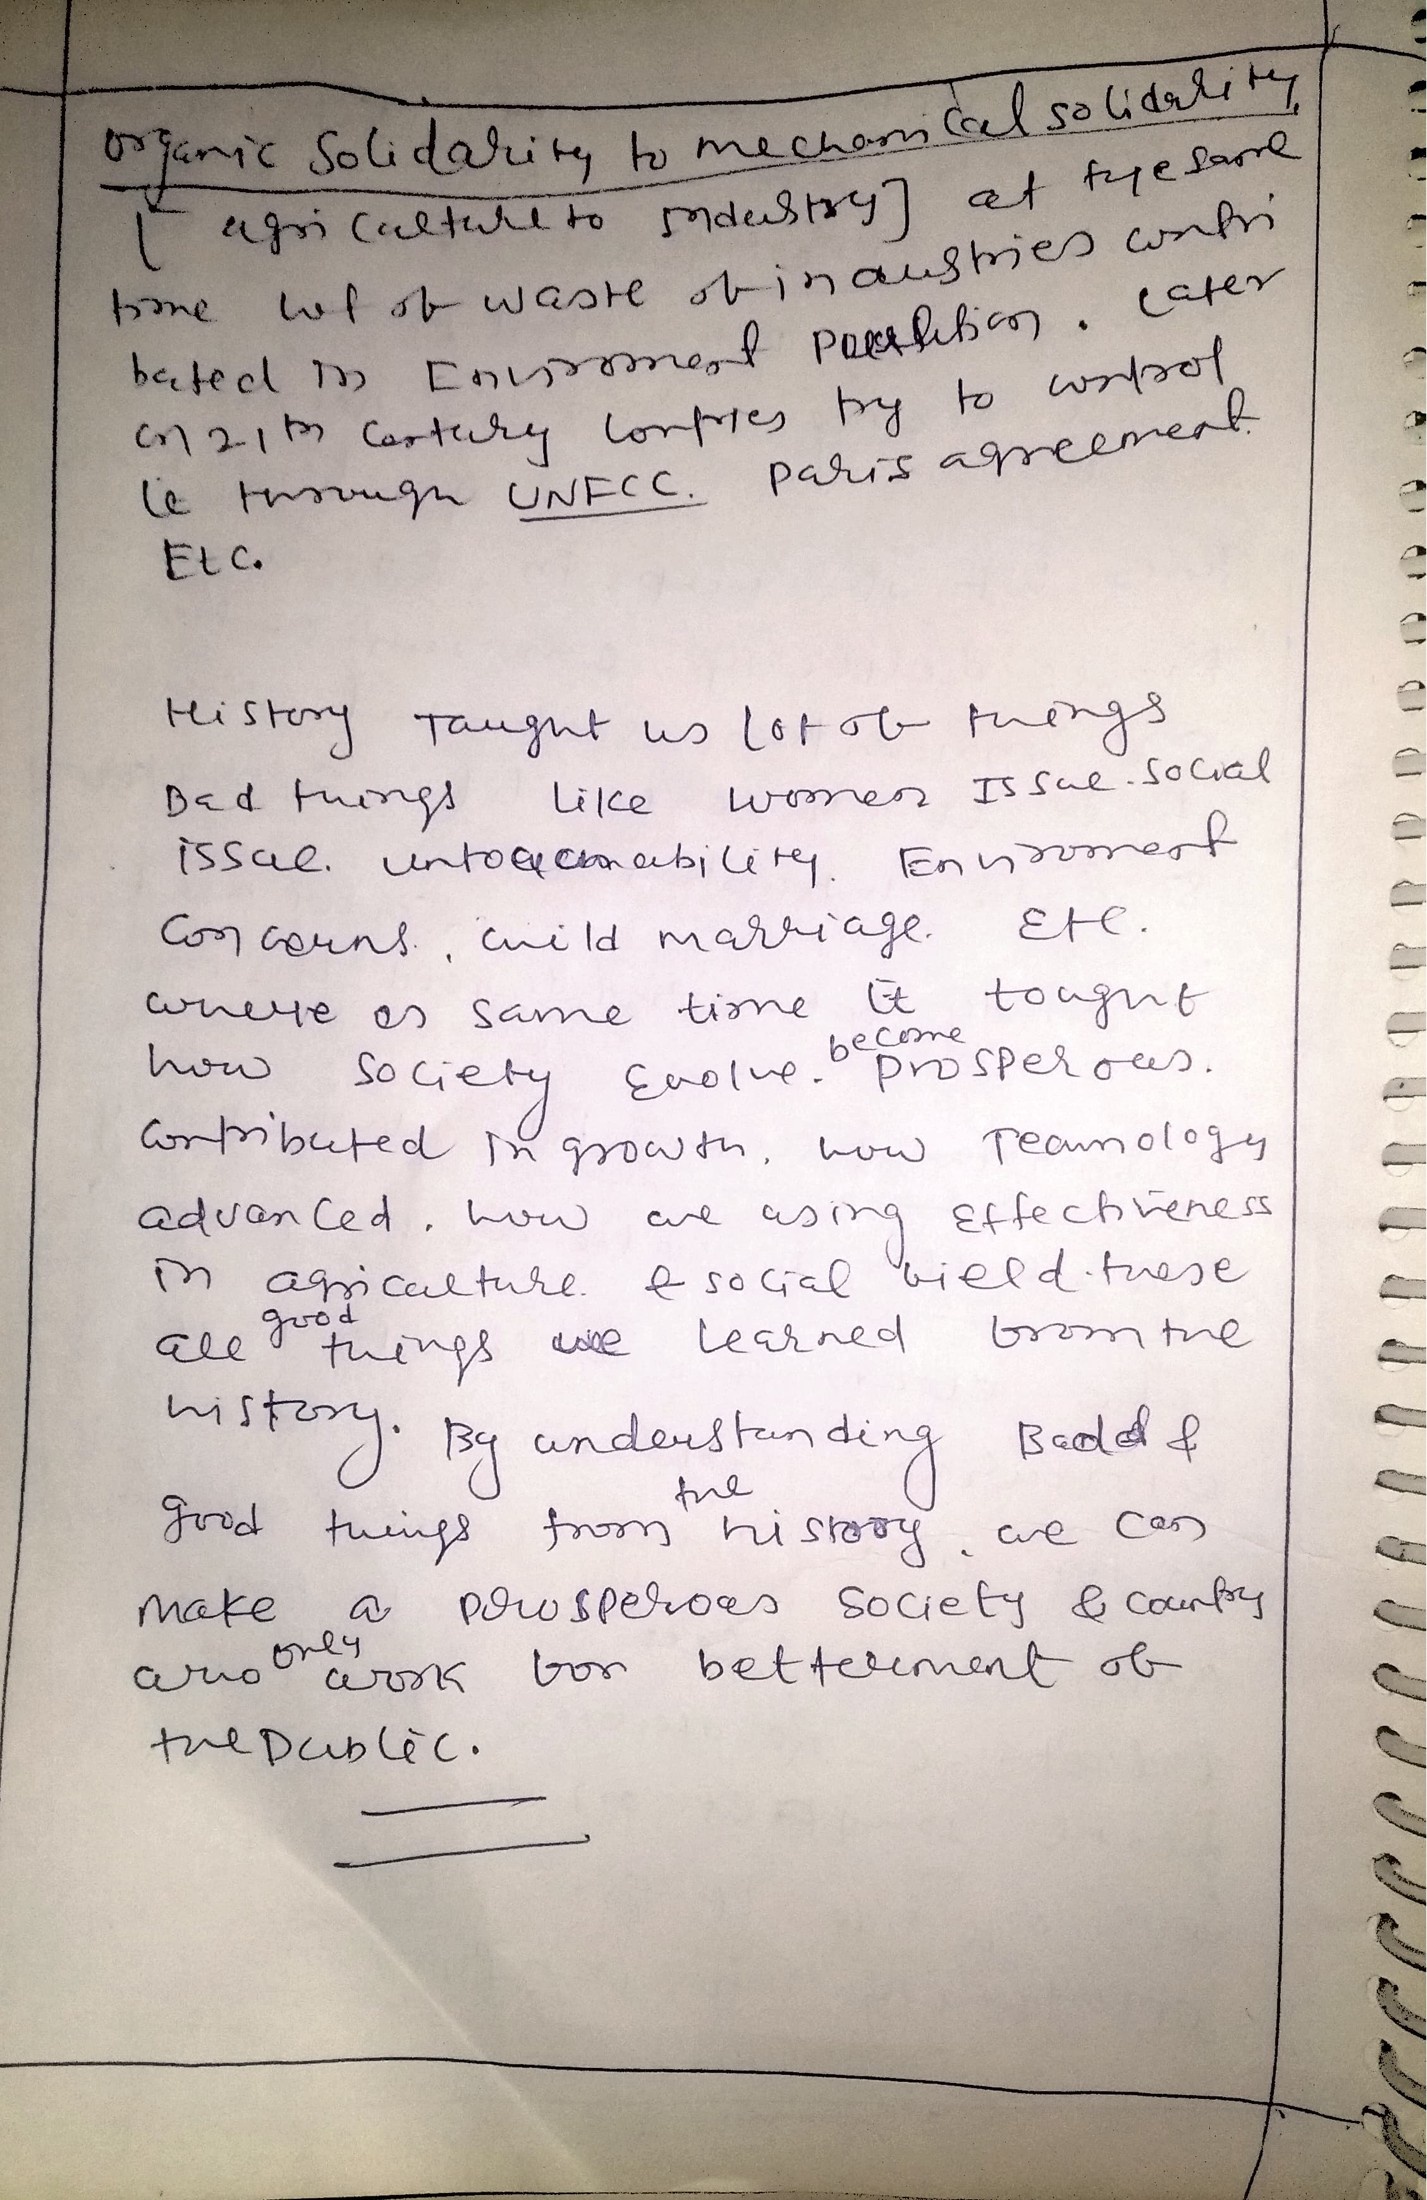 organic solidarity to mechanical solidarity
[ agriculture to industry ] at tye same
time lot of waste of industries contri
buted in Environment Pollution. Later
in 21th century contries try to control
it through UNFCC. Paris agreement.
Etc.
History Taught us lot of things
Bad things like women Issue. social
issue. untouchability. Environment
concerns, child marriage. Etc.
where as same time it tought
how society Evolve. become prosperous.
contributed in growth, how Technology
advanced, how we using Effectiveness
in agriculture & social field. these
all good things we learned from the
history. By understanding Bad &
good things from the history, we can
make a prosperous society & country
who only work for betterment of
the Public.